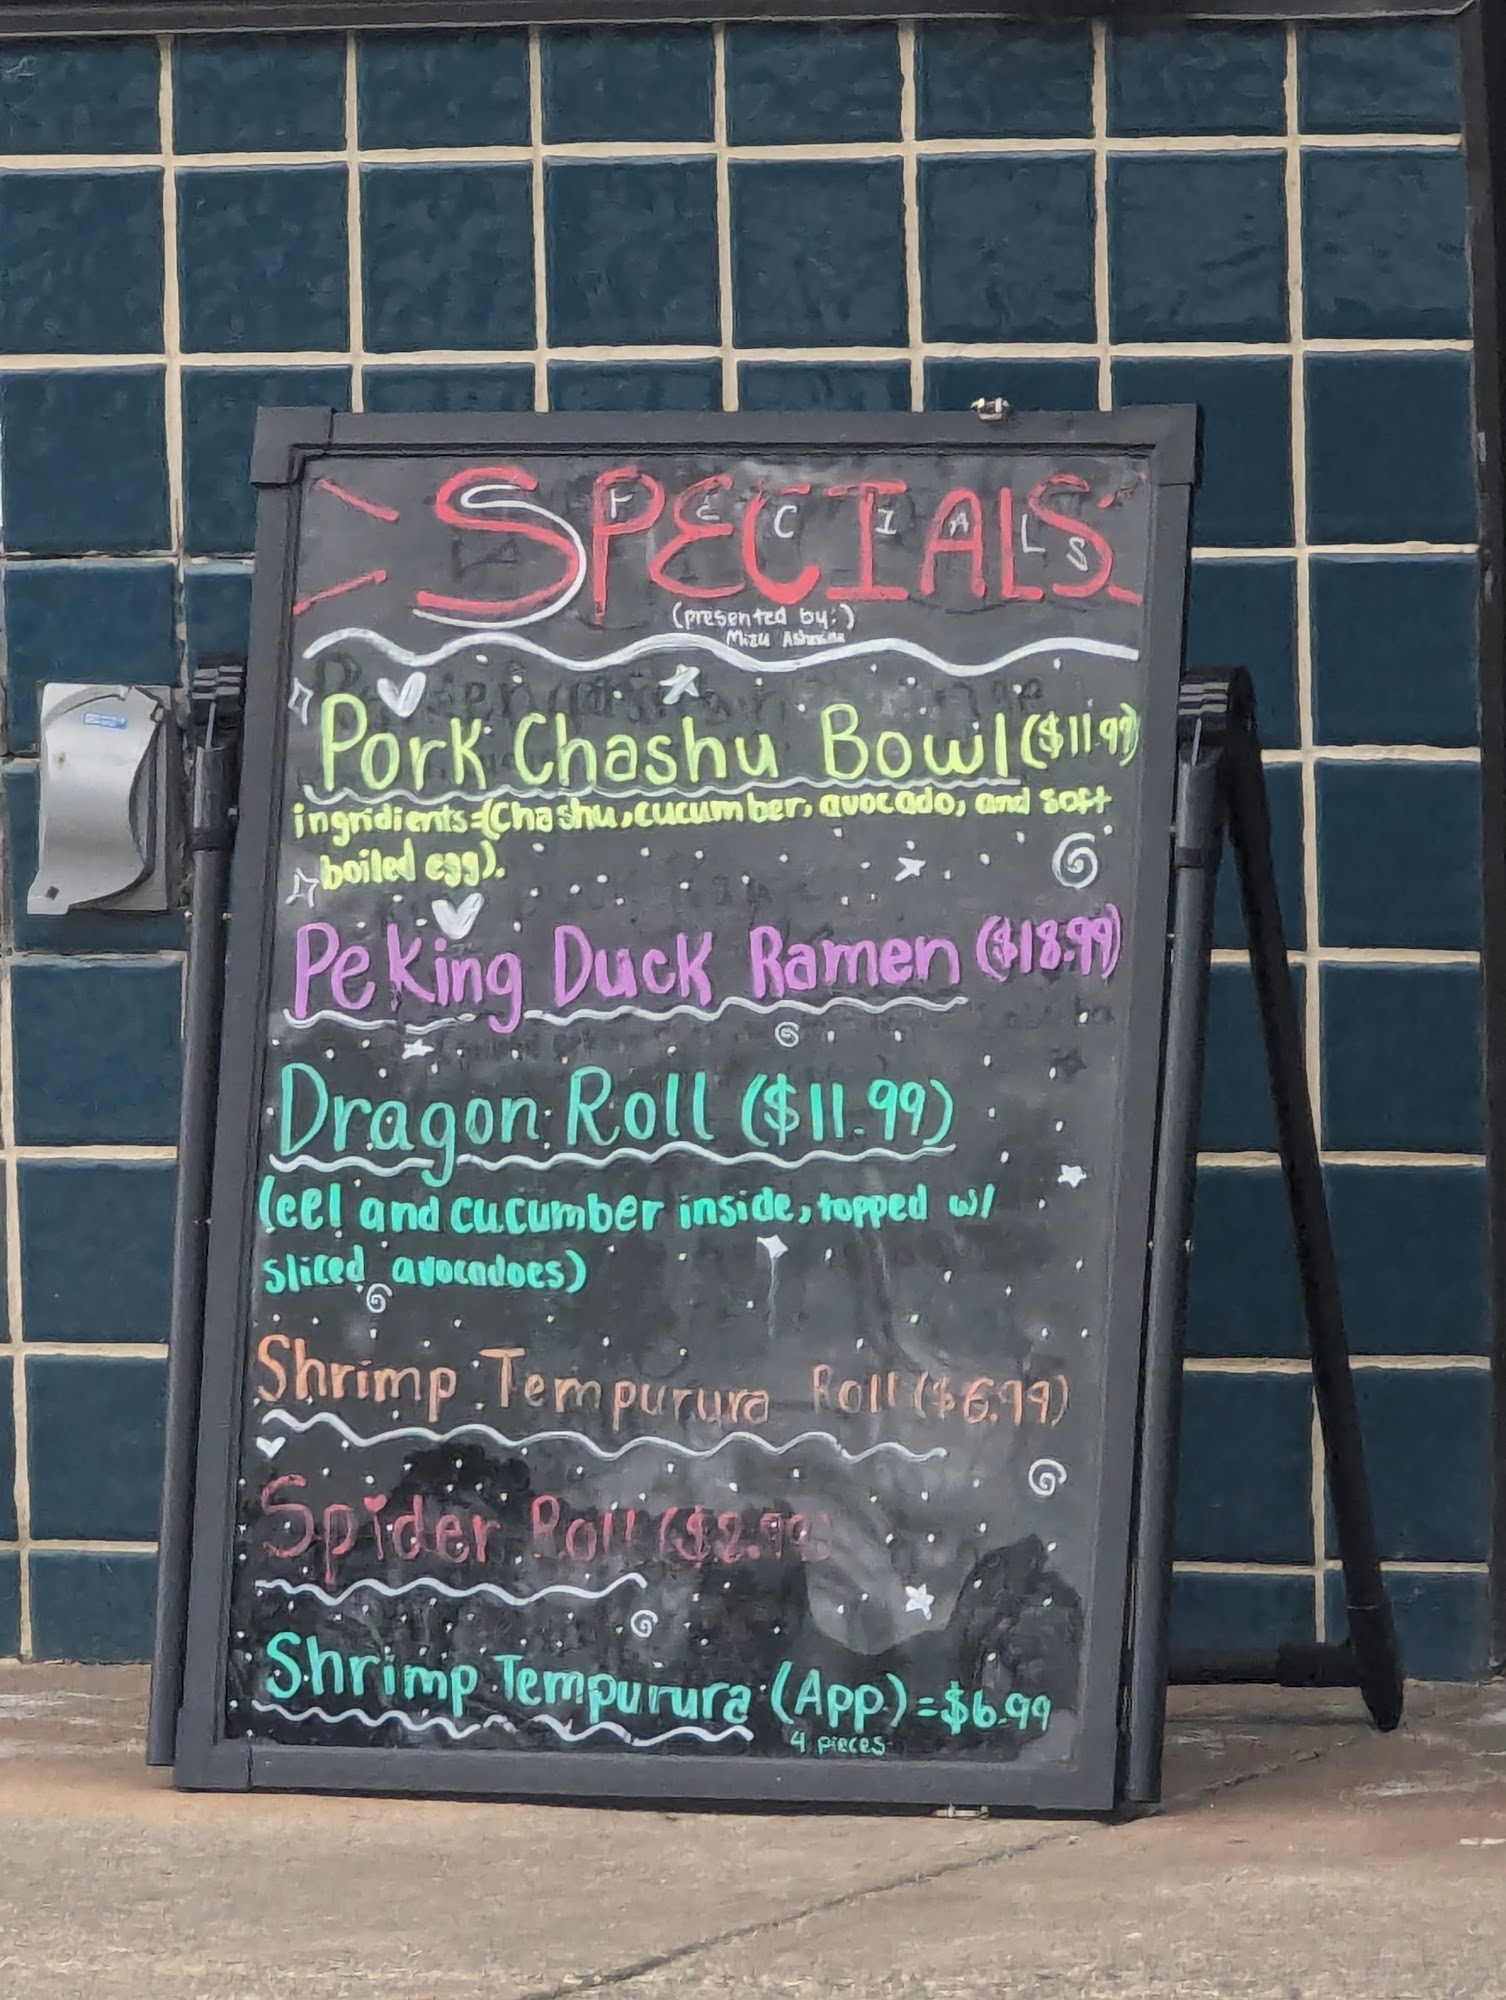 SPECIALS
(presented by:)
Mizu
Pork Chashu Bowl ($11.99)
ingridients=(Chashu, cucumber, avocado, and soft
boiled egg).
Peking Duck Ramen ($18.99)
Dragon Roll ($11.99)
(eel and cucumber inside, topped w/
sliced avocadoes)
Shrimp Tempurura Roll ($6.99)
Spider Roll ($2.99)
Shrimp Tempurura (App.) = $6.99
4 pieces